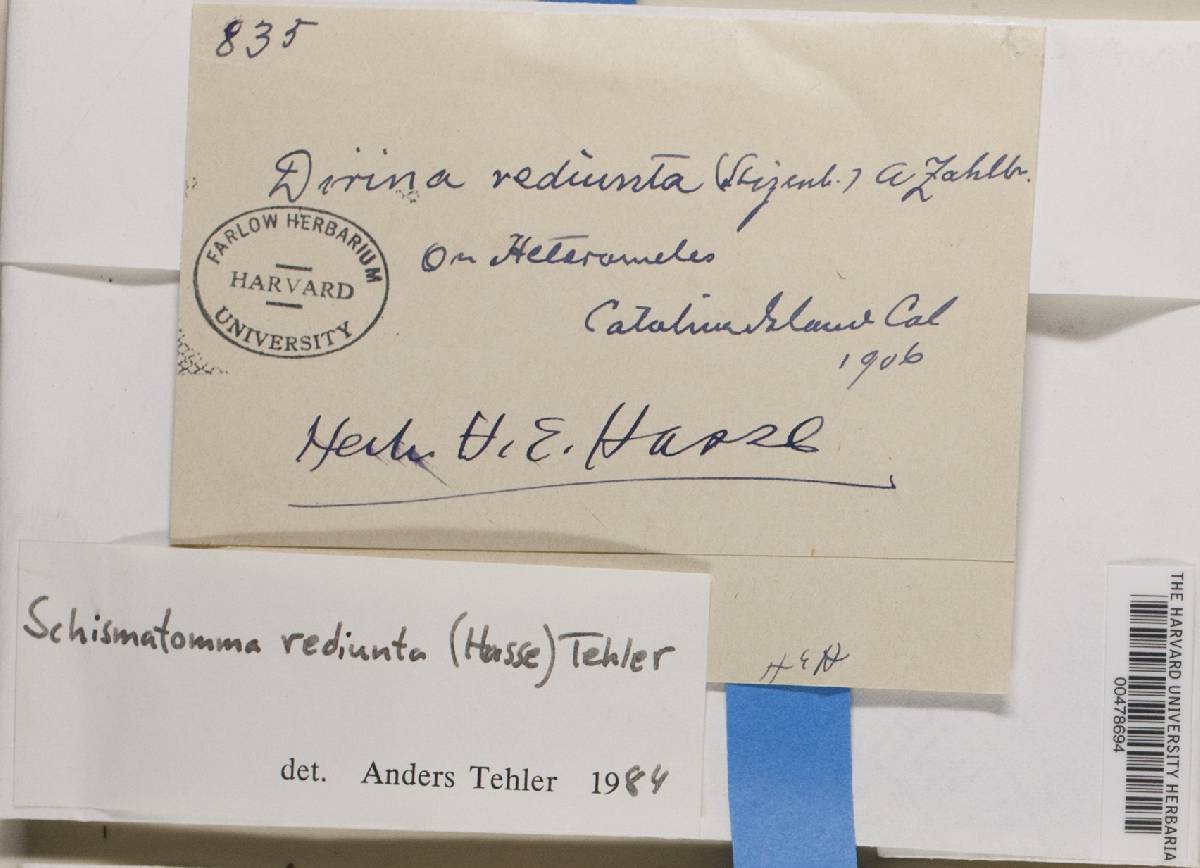 835
Dirina rediunta (Stizenb.) A Zahlbr.
FARLOW HERBARIUM
HARVARD
UNIVERSITY
On Heteromeles
Catalina Island Cal
1906
Herb. H. E. Hasse
Schismatomma rediunta (Hasse) Tehler
HEH
det. Anders Tehler 1984
THE HARVARD UNIVERSITY HERBARIA
00478694